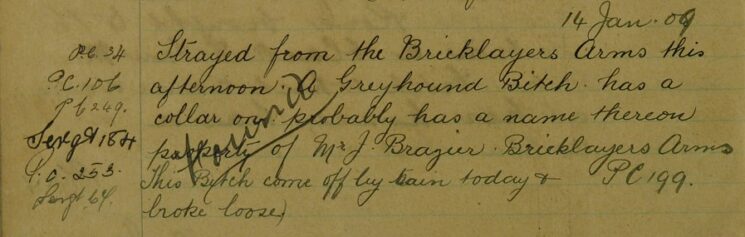 14 Jan. 09
P.C. 34
P.C. 106
P C 249.
Sergt 184
P.C. 253.
Sergt 64.
Strayed from the Bricklayers Arms this
afternoon. A Greyhound Bitch. has a
collar on. probably has a name thereon
property of Mr J Brazier. Bricklayers Arms
This Bitch come off by train today & PC 199.
broke loose)
Found